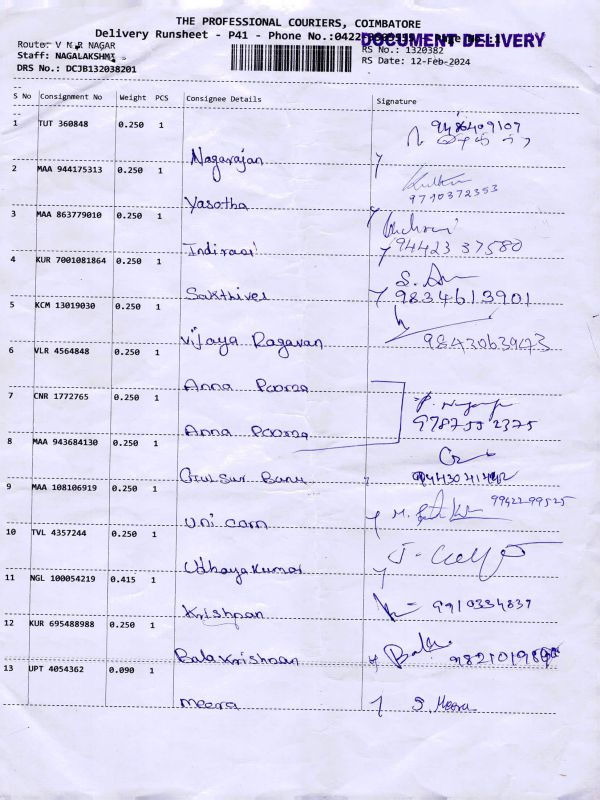 THE PROFESSIONAL COURIERS, COIMBATORE
Delivery Runsheet - P41 - Phone No.:0422
DOCUMENT DELIVERY
Route: V N R NAGAR
RS No.: 1320382
Staff: NAGALAKSHMI
RS Date: 12-Feb-2024
DRS No.: DCJB132038201
S No Consignment No Weight PCS Consignee Details Signature
1 TUT 360848 0.250 1
9486409107
Nagarajan
2 MAA 944175313 0.250 1
9790372353
Yasotha
3 MAA 863779010 0.250 1
Indirani 94423 37580
4 KUR 7001081864 0.250 1
Sakthivel 9834613901
5 KCM 13019030 0.250 1
Vijaya Ragavan 9843063973
6 VLR 4564848 0.250 1
Anna Poorna
7 CNR 1772765 1 0.250 1
Anna Poorna 9787552375
8 MAA 943684130 0.250 1
Gulsur Banu
9 MAA 108106919 0.250 1
99422-99525
Uni corn
10 TVL 4357244 0.250 1
Udhayakumar
11 NGL 100054219 0.415 1
Krishnan 9910334837
12 KUR 695488988 0.250 1
Bala
Balakrishnan
13 UPT 4054362 0.090 1
Meera S. Meera